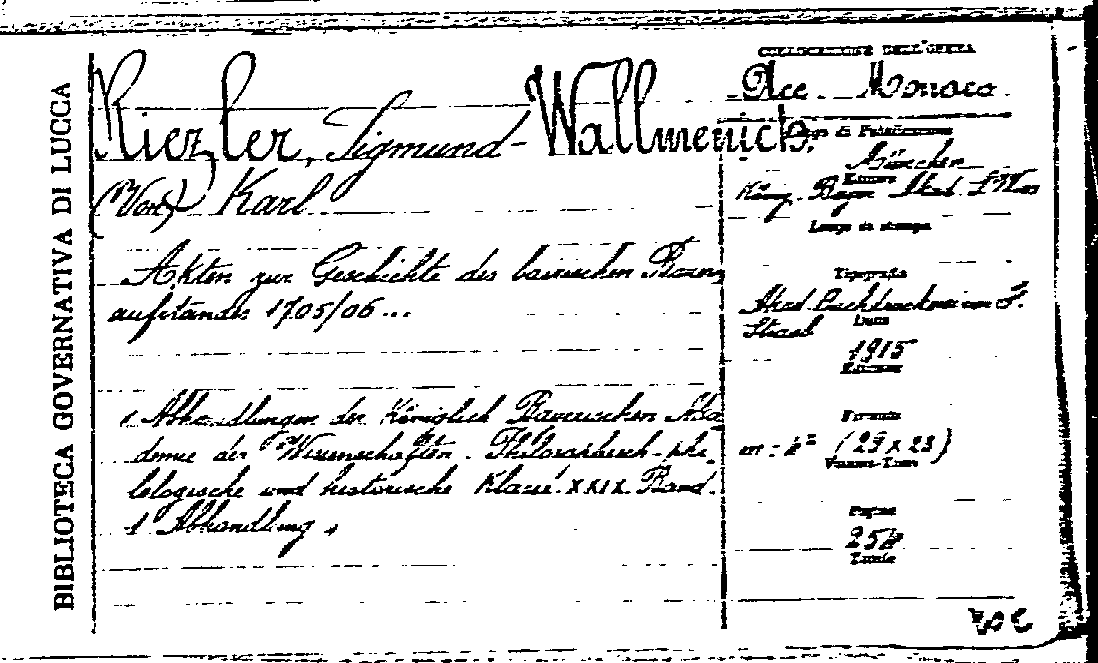 BIBLIOTECA GOVERNATIVA DI LUCCA
Riezler, Sigmund - Wallmenich
(Von) Karl
Akten zur Geschichte des bairischen Bauern
aufstandes 1705/06...
« Abhandlungen der Königlich Bayerischen Aka
demie der Wissenschaften - Philosophisch-phi
lologische und historische Klasse. XXIX Band.
1 Abhandlung »
COLLOCAZIONE DELL'OPERA
Acc. Monaco
Luogo di Pubblicazione
München
Editore
König. Bayer. Akad. d. Wiss
Luogo di stampa
Tipografia
Akad. Buchdruckerei von F.
Straub
Data
1915
Edizione
Formato
in-4° (29 x 23)
Volumi-Tomi
Pagine
Tavole